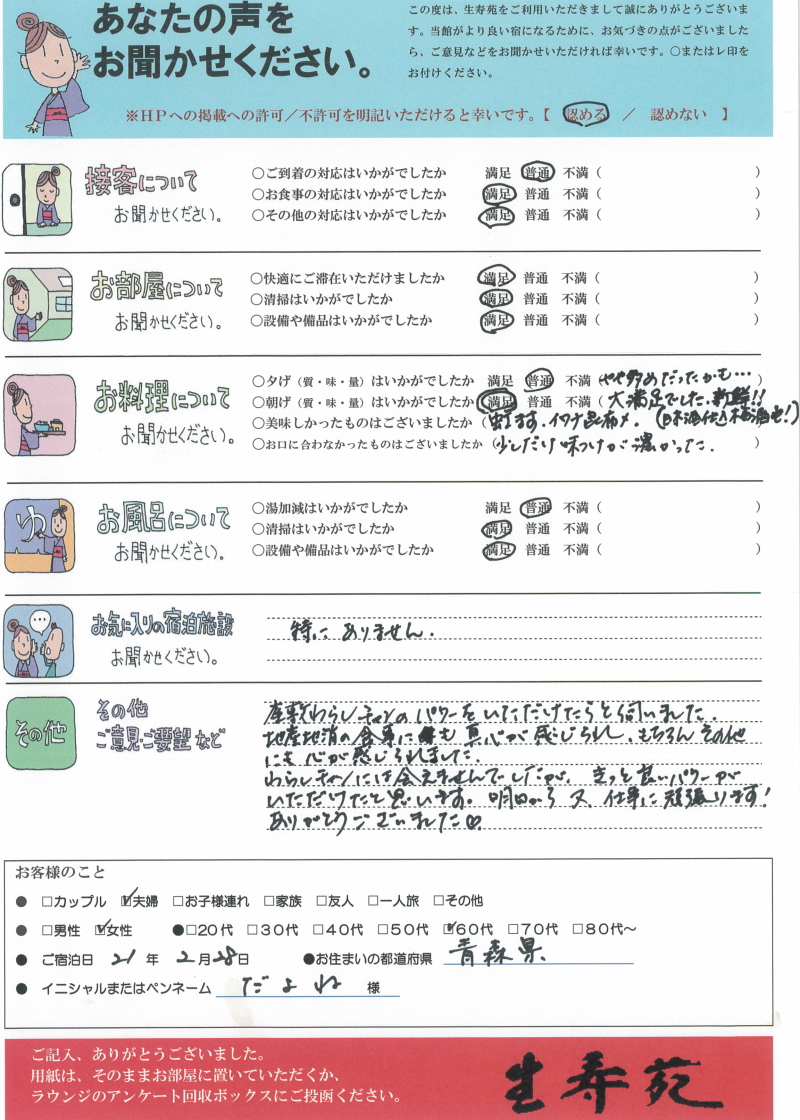 あなたの声を
お聞かせください。
この度は、生寿苑をご利用いただきまして誠にありがとうございま
す。当館がより良い宿になるために、お気づきの点がございました
ら、ご意見などをお聞かせいただければ幸いです。○またはレ印を
お付けください。
※HPへの掲載への許可／不許可を明記いただけると幸いです。【 認める ／ 認めない 】
接客について
お聞かせください。
○ご到着の対応はいかがでしたか 満足 普通 不満（ ）
○お食事の対応はいかがでしたか 満足 普通 不満（ ）
○その他の対応はいかがでしたか 満足 普通 不満（ ）
お部屋について
お聞かせください。
○快適にご滞在いただけましたか 満足 普通 不満（ ）
○清掃はいかがでしたか 満足 普通 不満（ ）
○設備や備品はいかがでしたか 満足 普通 不満（ ）
お料理について
お聞かせください。
○夕げ（質・味・量）はいかがでしたか 満足 普通 不満（やや多めだったかも…
○朝げ（質・味・量）はいかがでしたか 満足 普通 不満（大満足でした.新鮮!!
○美味しかったものはございましたか（出ます.イワナ昆布〆.（日本酒仕込梅酒も!）
○お口に合わなかったものはございましたか（少しだけ味つけが濃かった.
お風呂について
お聞かせください。
○湯加減はいかがでしたか 満足 普通 不満（ ）
○清掃はいかがでしたか 満足 普通 不満（ ）
○設備や備品はいかがでしたか 満足 普通 不満（ ）
ゆ
お気に入りの宿泊施設
お聞かせください。
特に ありません.
その他
その他
ご意見・ご要望など
座敷わらしチャンのパワーをいただけたらと伺いました.
地産地消の食事にも真心が感じられ、もちろんその他
にも心が感じられました.
わらしチャンには会えませんでしたが、きっと良いパワーが
いただけたと思います。明日から又、仕事に頑張ります!
ありがとうございました♡.
お客様のこと
● □カップル ☑夫婦 □お子様連れ □家族 □友人 □一人旅 □その他
● □男性 ☑女性 ●□20代 □30代 □40代 □50代 ☑60代 □70代 □80代～
● ご宿泊日 21 年 2 月 28 日 ●お住まいの都道府県 青森県
● イニシャルまたはペンネーム だよね 様
ご記入、ありがとうございました。
用紙は、そのままお部屋に置いていただくか、
ラウンジのアンケート回収ボックスにご投函ください。
生寿苑